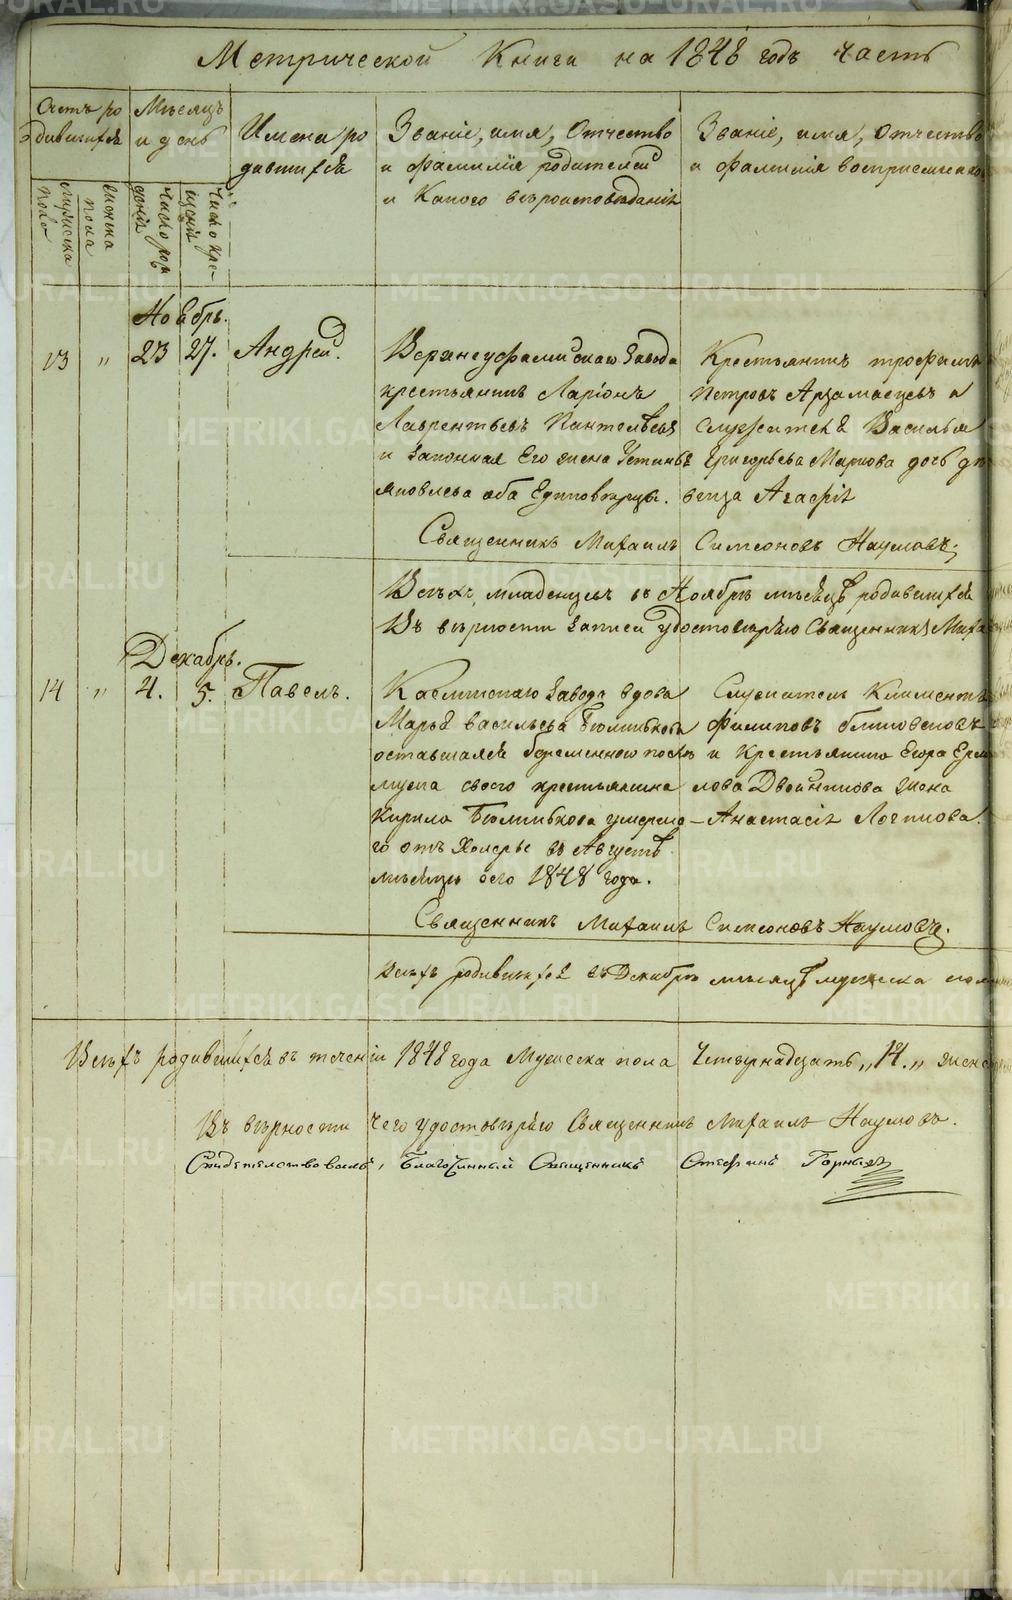 Метрической Книги на 1848 годъ часть
Счетъ ро
дившихся
Мѣсяцъ
и день
Имена ро
дившихся
Званіе, имя, Отчество
и фамилія родителей
и Какого вѣроисповѣданія
Званіе, имя, Отчество
и фамилія воспріемнико
мужеска
пола
женска
пола
число рож
денія
число кре
щенія
Ноябрь.
13 „ 23 27. Андрей.
Верхнеуфалейскаго Завода
крестьянинъ Ларіонъ
Лаврентьевъ Пантелѣевъ
и законная Его жена Устинья
яковлева оба Единовѣрцы.
Крестьянинъ трофимъ
Петровъ Арзамасцевъ и
Служителя Василья
Григорьева Маркова дочь дѣ
вица Агафія
Священникъ Михаилъ Симеоновъ Наумовъ.
Всѣхъ младенцевъ въ Ноябрѣ мѣсяцѣ родившихся
Въ вѣрности записи удостовѣряю Священникъ Миха
Декабрь.
14 „ 4. 5. Павелъ.
Каслинскаго Завода вдова
Марья васильева
оставшаяся беременною послѣ
мужа своего крестьянина
Кирила умерша-
го отъ Холеры въ Августѣ
мѣсяцѣ сего 1848 года.
Служитель Климентъ
Филиповъ блиновсковъ
и Крестьянина Егора Ерем
лова Двойникова жена
Анастасія Логинова.
Священникъ Михаилъ Симеоновъ Наумовъ.
Всѣхъ родившихся въ Декабрѣ мѣсяцѣ мужеска пола
Всѣхъ родившихся въ теченіи 1848 года Мужеска пола Четырнадцать „14.„ женс
Въ вѣрности чего удостовѣряю Священникъ Михаилъ Наумовъ.
Свидетелствовалъ, Благочинный Священникъ Стефанъ Горныхъ
METRIKI.GASO-URAL.RU